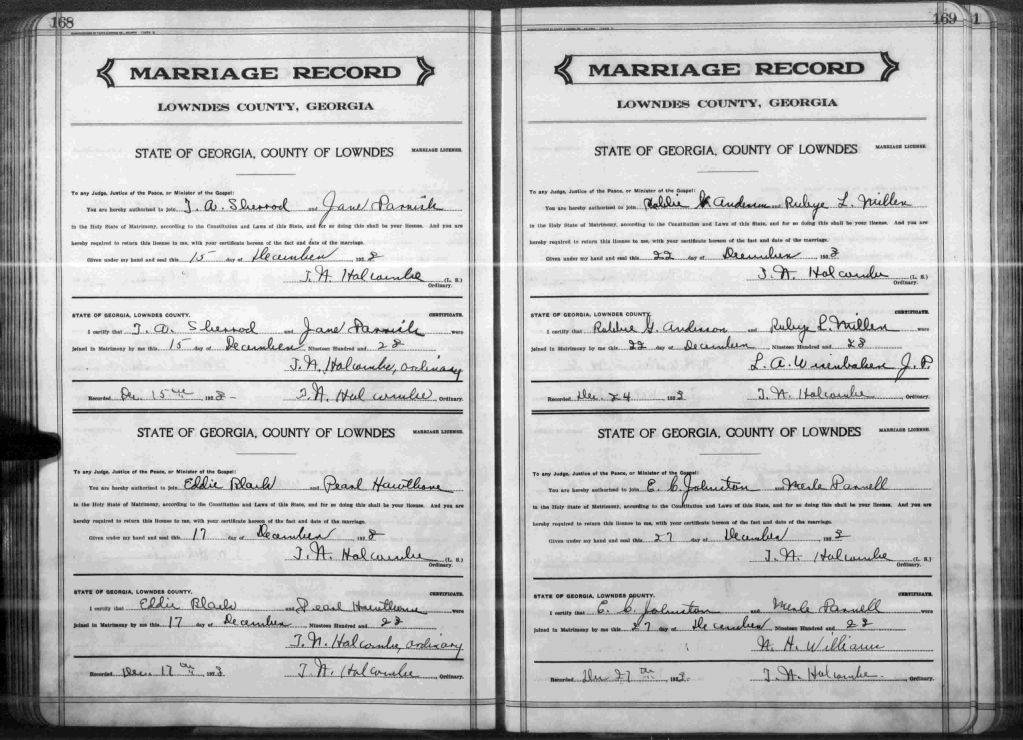 168
MARRIAGE RECORD
LOWNDES COUNTY, GEORGIA
STATE OF GEORGIA, COUNTY OF LOWNDES MARRIAGE LICENSE
To any Judge, Justice of the Peace, or Minister of the Gospel:
You are hereby authorized to join T. A. Sherrod and Jane Parrish
in the Holy State of Matrimony, according to the Constitution and Laws of this State, and for so doing this shall be your license. And you are
hereby required to return this license to me, with your certificate hereon of the fact and date of the marriage.
Given under my hand and seal this 15 day of December 1928
T. N. Holcombe (L. S.)
Ordinary.
STATE OF GEORGIA, LOWNDES COUNTY. CERTIFICATE.
I certify that T. A. Sherrod and Jane Parrish were
joined in Matrimony by me this 15 day of December Nineteen Hundred and 28
T. N. Holcombe, ordinary
Recorded Dec. 15th 1928 T. N. Holcombe, Ordinary.
STATE OF GEORGIA, COUNTY OF LOWNDES MARRIAGE LICENSE
To any Judge, Justice of the Peace, or Minister of the Gospel:
You are hereby authorized to join Eddie and Pearl Hawthorne
in the Holy State of Matrimony, according to the Constitution and Laws of this State, and for so doing this shall be your license. And you are
hereby required to return this license to me, with your certificate hereon of the fact and date of the marriage.
Given under my hand and seal this 17 day of December 1928
T. N. Holcombe (L. S.)
Ordinary.
STATE OF GEORGIA, LOWNDES COUNTY. CERTIFICATE.
I certify that Eddie and Pearl Hawthorne were
joined in Matrimony by me this 17 day of December Nineteen Hundred and 28
T. N. Holcombe, ordinary
Recorded Dec. 17th 1928 T. N. Holcombe, Ordinary.
169
1
MARRIAGE RECORD
LOWNDES COUNTY, GEORGIA
STATE OF GEORGIA, COUNTY OF LOWNDES MARRIAGE LICENSE
To any Judge, Justice of the Peace, or Minister of the Gospel:
You are hereby authorized to join Robbie G. Anderson and Rubye L. Miller
in the Holy State of Matrimony, according to the Constitution and Laws of this State, and for so doing this shall be your license. And you are
hereby required to return this license to me, with your certificate hereon of the fact and date of the marriage.
Given under my hand and seal this 22 day of December 1928
T. N. Holcombe (L. S.)
Ordinary.
STATE OF GEORGIA, LOWNDES COUNTY. CERTIFICATE.
I certify that Robbie G. Anderson and Rubye L. Miller were
joined in Matrimony by me this 22 day of December Nineteen Hundred and 28
L. A. Wisenbaker J. P.
Recorded Dec. 24 1928 T. N. Holcombe, Ordinary.
STATE OF GEORGIA, COUNTY OF LOWNDES MARRIAGE LICENSE
To any Judge, Justice of the Peace, or Minister of the Gospel:
You are hereby authorized to join E. C. Johnston and Merle Parnell
in the Holy State of Matrimony, according to the Constitution and Laws of this State, and for so doing this shall be your license. And you are
hereby required to return this license to me, with your certificate hereon of the fact and date of the marriage.
Given under my hand and seal this 27 day of December 1928
T. N. Holcombe (L. S.)
Ordinary.
STATE OF GEORGIA, LOWNDES COUNTY. CERTIFICATE.
I certify that E. C. Johnston and Merle Parnell were
joined in Matrimony by me this 27 day of December Nineteen Hundred and 28
H. Williams
Recorded Dec 27th 1928 T. N. Holcombe, Ordinary.